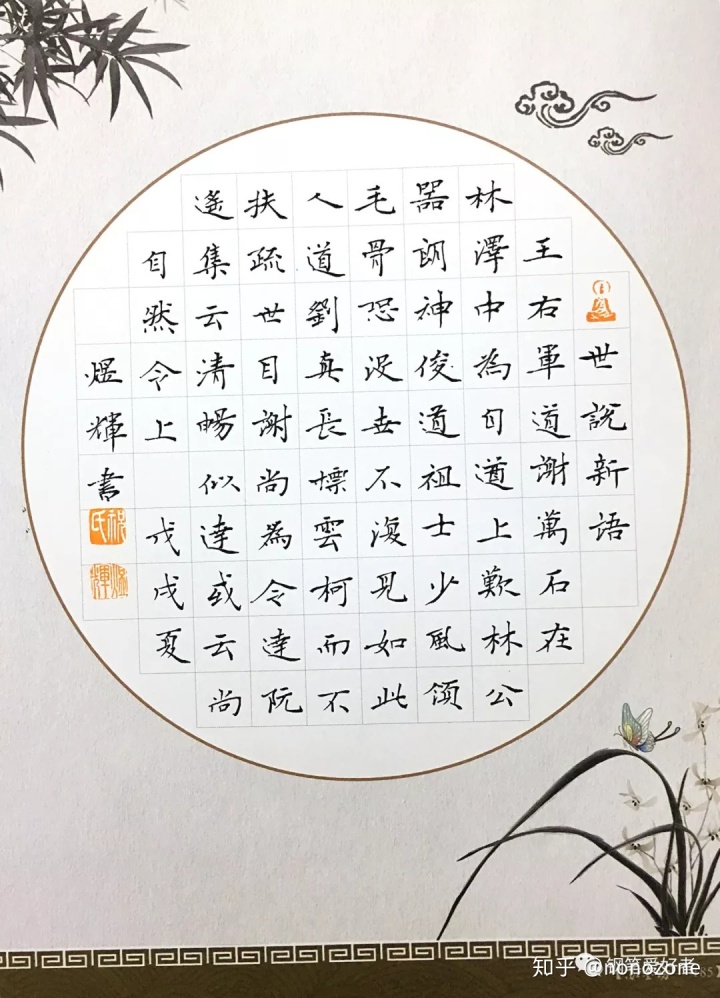 世說新語
王右軍道謝萬石在
林澤中為自遒上歎林公
器朗神俊道祖士少風領
毛骨恐沒世不復見如此
人道劉真長標雲柯而不
扶疏世目謝尚為令達阮
遙集云清暢似達或云尚
自然令上 戊戌夏
煜輝書
祝氏
煜輝
知乎 @nonozone
钢笔爱好者